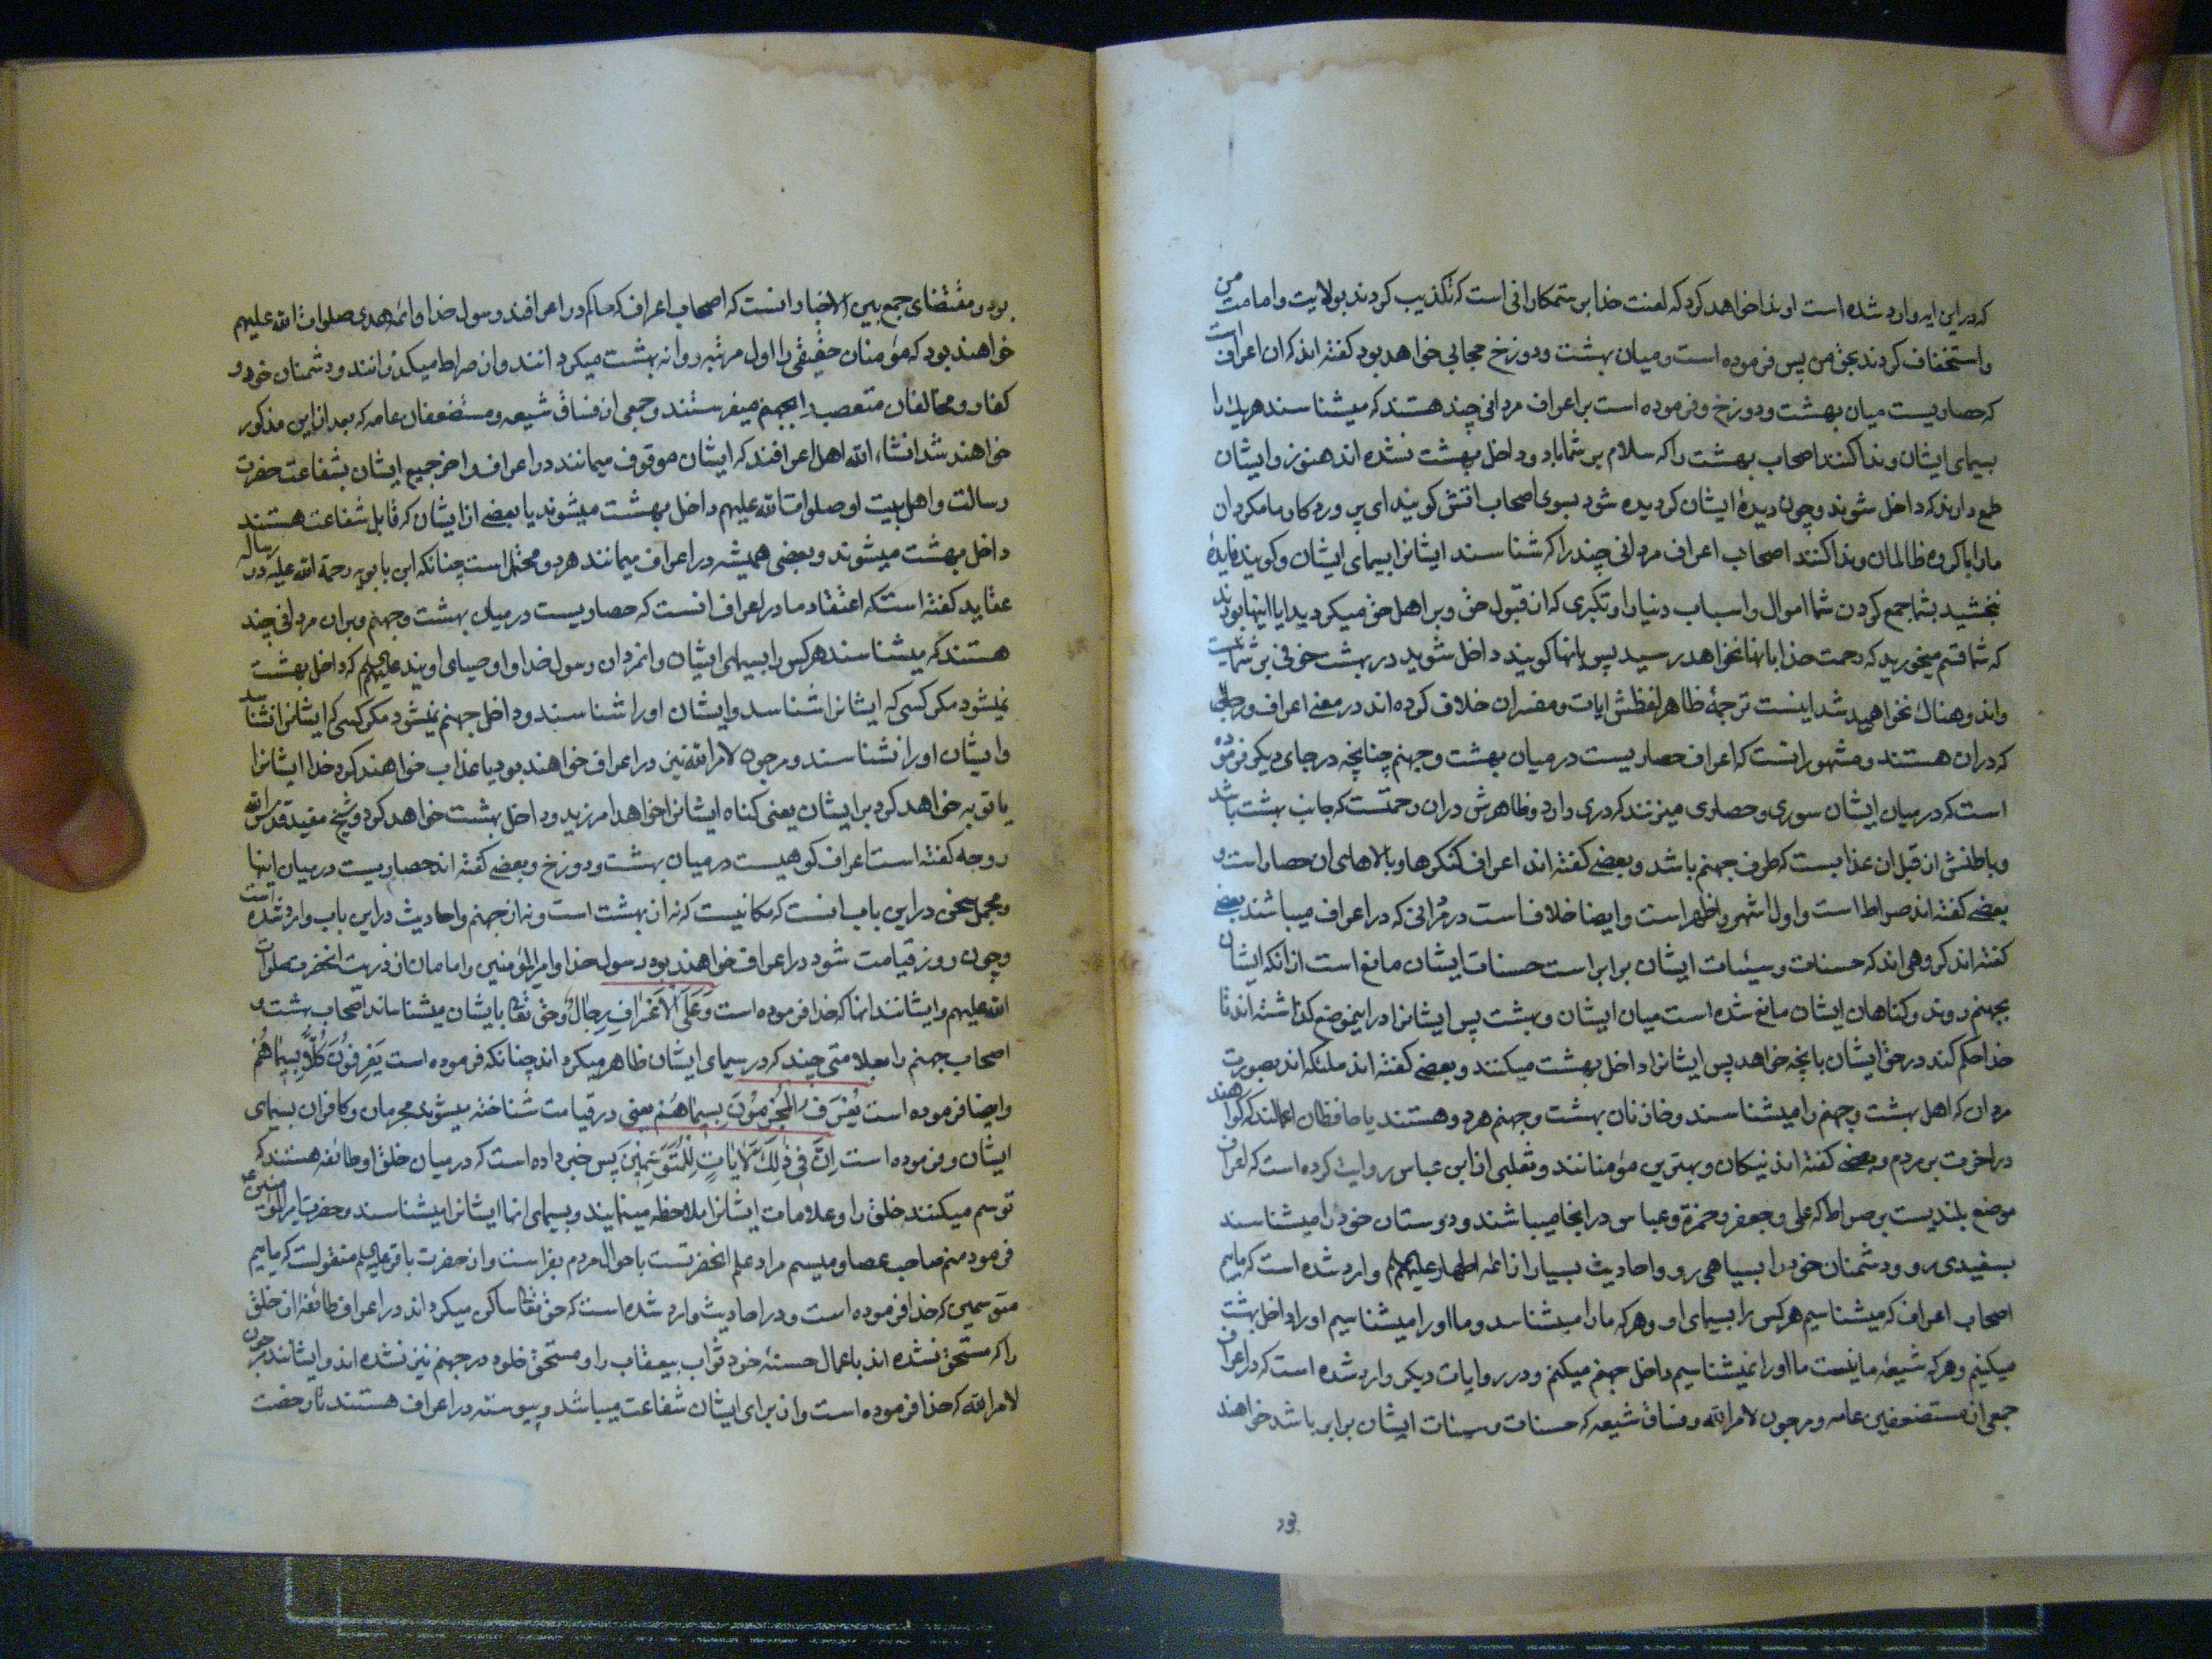 که در این ایه وارد شده است او ندا خواهد کرد که لعنت خدا بر ستمکارانی است که تکذیب کردند بولایت و امامت من
و استخفاف کردند بحق من پس فرموده است و میان بهشت و دوزخ حجابی خواهد بود کفته اند که ان اعراف است
که حصاریست میان بهشت و دوزخ و فرموده است بر اعراف مردانی چند هستند که میشناسند هریک را
بسیمای ایشان و ندا کنند اصحاب بهشت را که سلام بر شما باد و داخل بهشت نشده اند هنوز و ایشان
طمع دارند که داخل شوند و چون دیدهٔ ایشان کردیده شود بسوی اصحاب اتش کویند ای پروردکار ما مکردان
ما را با کروه ظالمان و ندا کنند اصحاب اعراف مردانی چند را که شناسند ایشانرا بسیمای ایشان و کویند فایدهٔ
نبخشید بشما جمع کردن شما اموال و اسباب دنیا را و تکبری که از قبول حق و بر اهل حق میکردید ایا اینها بودند
که شما قسم میخوردید که رحمت خدا بانها نخواهد رسید پس بانها کویند داخل شوید در بهشت خوفی بر شما نیست
و اندوهناک نخواهید شد اینست ترجمهٔ ظاهر لفظش ایات و مفسران خلاف کرده اند در معنی اعراف و رجالی
که در ان هستند و مشهور انست که اعراف حصاریست در میان بهشت و جهنم چنانچه در جای دیکر فرموده
است که در میان ایشان سوری و حصاری میزنند که دری دارد و ظاهرش در ان رحمتست که جانب بهشت باشد
و باطنش از قبل ان عذابست که طرف جهنم باشد و بعضی کفته اند اعراف کنکرها و بالاهای ان حصار است و
بعضی کفته اند صراط است و اول اشهر و اظهر است و ایضا خلافست در مردانی که در اعراف میباشند بعضی
کفته اند کروهی اند که حسنات و سیئات ایشان برابر است حسنات ایشان مانع است از انکه ایشان
بجهنم روند و کناهان ایشان مانع شده است میان ایشان و بهشت پس ایشانرا در اینموضع کذاشته اند تا
خدا حکم کند در حق ایشان بانچه خواهد پس ایشانرا داخل بهشت میکنند و بعضی کفته اند ملئکه اند بصورت
مردان که اهل بهشت و جهنم را میشناسند و خازنان بهشت و جهنم هر دو هستند یا حافظان اعمالند که کواهند
در اخرت بر مردم و بعضی کفته اند نیکان و بهترین مؤمنانند و ثعلبی از ابن عباس روایت کرده است که اعراف
موضع بلندیست بر صراط که علی و جعفر و حمزة و عباس در انجا میباشند و دوستان خود را میشناسند
بسفیدی رو و دشمنان خود را بسیاهی رو و احادیث بسیار از ائمه اطهار علیهم وارد شده است که مائیم
اصحاب اعراف که میشناسیم هر کس را بسیمای او و هر که ما را میشناسد و ما او را میشناسیم او را داخل بهشت
میکنیم و هر که شیعهٔ ما نیست ما او را نمیشناسیم داخل جهنم میکنم و در روایات دیکر وارد شده است که در اعراف
جمعی از مستضعفین عامه و مرجون لامر الله و فساق شیعه که حسنات و سیئات ایشان برابر باشد خواهند
بود
بود و مقتضای جمع بین الاخبار انست که اصحاب اعراف که حاکم در اعرافند رسول خدا و ائمهٔ هدی صلوات الله علیهم
خواهند بود که مؤمنان حقیقی را اول مرتبه روانه بهشت میکردانند و از صراط میکذرانند و دشمنان خود و
کفار و مخالفان متعصب را بجهنم میفرستند و جمعی از فساق شیعه و مستضعفان عامه که بعد از این مذکور
خواهند شد انشاء الله اهل اعرافند که ایشان موقوف میمانند در اعراف و اخر جمیع ایشان بشفاعت حضرت
رسالت و اهل بیت او صلوات الله علیهم داخل بهشت میشوند یا بعضی از ایشان که قابل شفاعت هستند
داخل بهشت میشوند و بعضی همیشه در اعراف میمانند هر دو محتمل است چنانکه ابن بابویه رحمة الله علیه در رساله
عقاید کفته است که اعتقاد ما در اعراف انست که حصاریست در میان بهشت و جهنم و بران مردانی چند
هستند که میشناسند هر کس را بسیمای ایشان و انمردان رسول خدا و اوصیای اویند علیهم که داخل بهشت
نمیشود مکر کسی که ایشانرا شناسد و ایشان او را شناسند و داخل جهنم نمیشود مکر کسی که ایشانرا نشناسد
و ایشان او را نشناسند و مرجون لامر الله نیز در اعراف خواهند بود یا عذاب خواهند کرد خدا ایشانرا
یا توبه خواهد کرد بر ایشان یعنی کناه ایشانرا خواهد امرزید و داخل بهشت خواهد کرد و شیخ مفید قدس الله
روحه کفته است اعراف کوهیست در میان بهشت و دوزخ و بعضی کفته اند حصاریست در میان اینها
و مجمل سخن در این باب انست که مکانیست که نه از بهشت است و نه از جهنم و احادیث در این باب وارد شده است
و چون روز قیامت شود در اعراف خواهند بود رسول خدا و امیر المؤمنین و امامان از ذریت انحضرت صلوات
الله علیهم و ایشانند انها که خدا فرموده است وَعَلَی الْاَعْرٰافِ رِجٰالٌ و حق تعالی بایشان میشناساند اصحاب بهشت و
اصحاب جهنم را بعلامتی چند که در سیمای ایشان ظاهر میکرداند چنانکه فرموده است یَعْرِفُونَ کُلًّا بِسِیمٰاهُمْ
و ایضا فرموده است یُعْرَفُ الْمُجْرِمُوْنَ بِسِیمٰاهُمْ یعنی در قیامت شناخته میشوند مجرمان و کافران بسیمای
ایشان و فرموده است اِنَّ فی ذٰلِکَ لَاٰیٰاتٍ لِلْمُتَوَسِّمینَ پس خبر داده است که در میان خلق او طائفه هستند که
توسم میکنند خلق را و علامات ایشانرا ملاحظه مینمایند و بسیمای انها ایشانرا میشناسند و حضرت امیر المؤمنین ع
فرمود منم صاحب عصا و میسم مراد علم انحضرتست باحوال مردم بفراست و از حضرت باقر علیه منقولست که مائیم
متوسمین که خدا فرموده است و در احادیث وارد شده است که حق تعالی ساکن میکرداند در اعراف طائفهٔ از خلق
را که مستحق نشده اند باعمال حسنهٔ خود ثواب بیعقاب را و مستحق خلود در جهنم نیز نشده اند و ایشانند مرجون
لامر الله که خدا فرموده است و از برای ایشان شفاعت میباشد و پیوسته در اعراف هستند تا رخصت